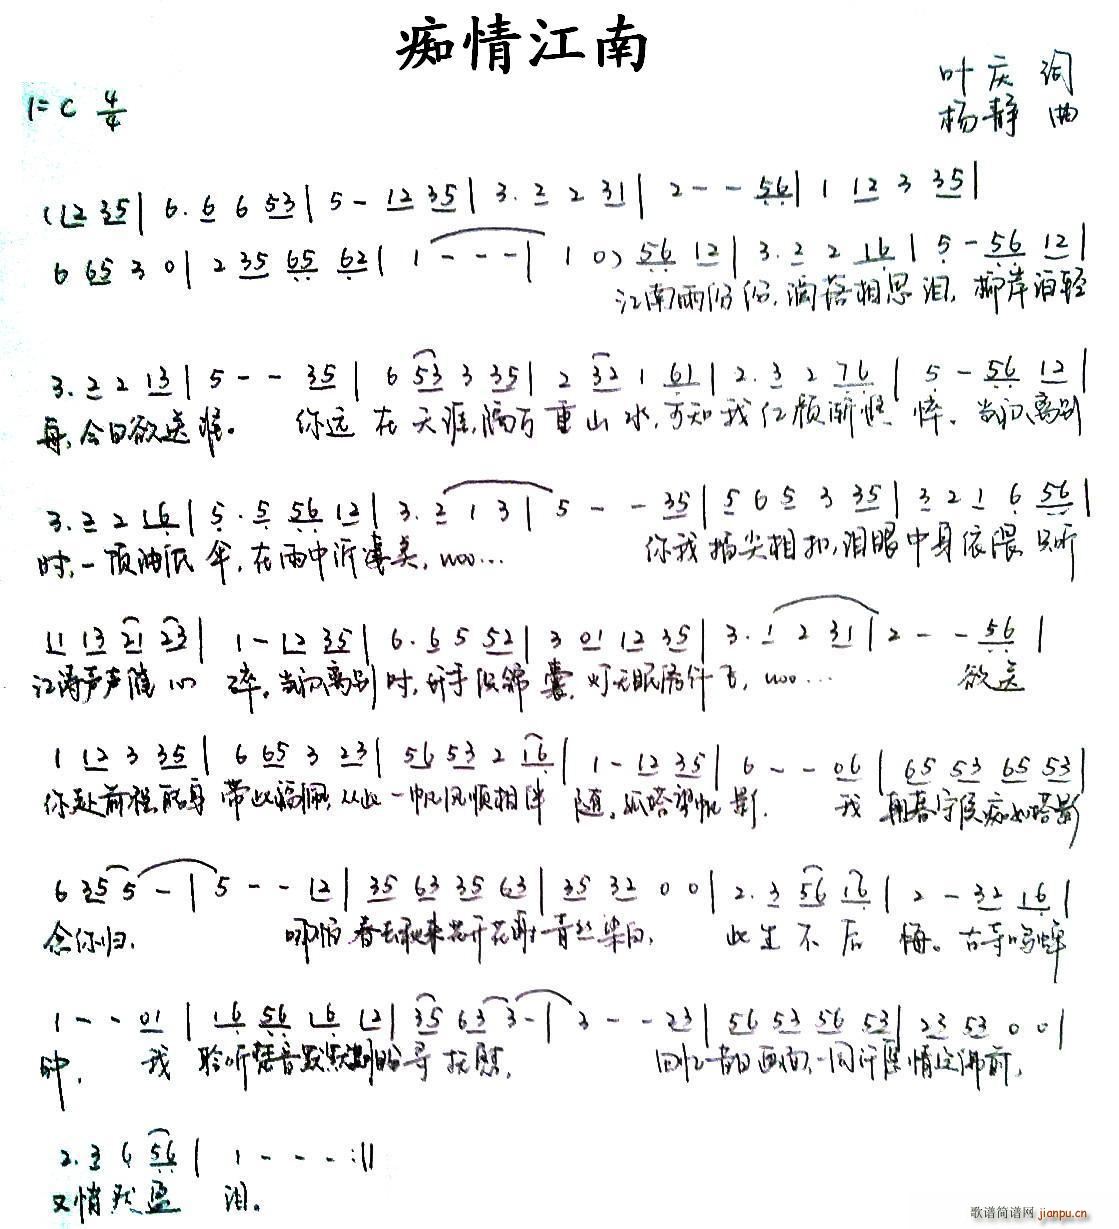 痴情江南
叶庆 词
1=C 4/4
杨静 曲
(12 35| 6. 6 6 53| 5 - 12 35| 3. 2 2 31| 2 - - 56| 1 12 3 35|
6 65 3 0| 2 35 65 62| 1 - - -| 1 0) 56 12| 3. 2 2 16| 5 - 56 12|
江南雨份份,滴落相思泪,柳岸泊轻
3. 2 2 13| 5 - - 35| 6 53 3 35| 2 32 1 61| 2. 3 2 76| 5 - 56 12|
每,今日欲送谁。 你远在天涯,隔万重山水,可知我红颜渐憔悴。当初离别
3. 2 2 16| 5. 5 56 12| 3. 2 1 3| 5 - - 35| 5 6 5 3 35| 3 2 1 6 56|
时,一顶油纸伞,在雨中诉凄美,woo... 你我指尖相扣,泪眼中身依偎 只听
11 13 21 23| 1 - 12 35| 6. 6 5 52| 3 01 12 35| 3. 1 2 31| 2 - - 56|
江涛声声随心碎,当初离别时, woo... 欲送
1 12 3 35| 6 65 3 23| 56 53 2 16| 1 - 12 35| 6 - - 06| 65 53 65 53|
你赴前程 带此福佩,从此一帆风顺相伴随,孤塔望帆影. 我朝暮守侯痴如塔影
6 35 5 -| 5 - - 12| 35 63 35 63| 35 32 0 0| 2. 3 56 16| 2 - 32 16|
念你归. 哪怕春去秋来花开花谢青丝染白, 此生不后悔。古寺鸣蝉
1 - - 01| 16 56 16 12| 35 63 3 -| 3 - - 23| 56 53 56 53| 23 53 0 0|
钟, 我聆听梵音默默 寻抚慰, 回忆昔日画面,一同许愿情定佛前,
2. 3 6 56| 1 - - - :||
又悄然盈泪。
歌谱简谱网 jianpu.cn